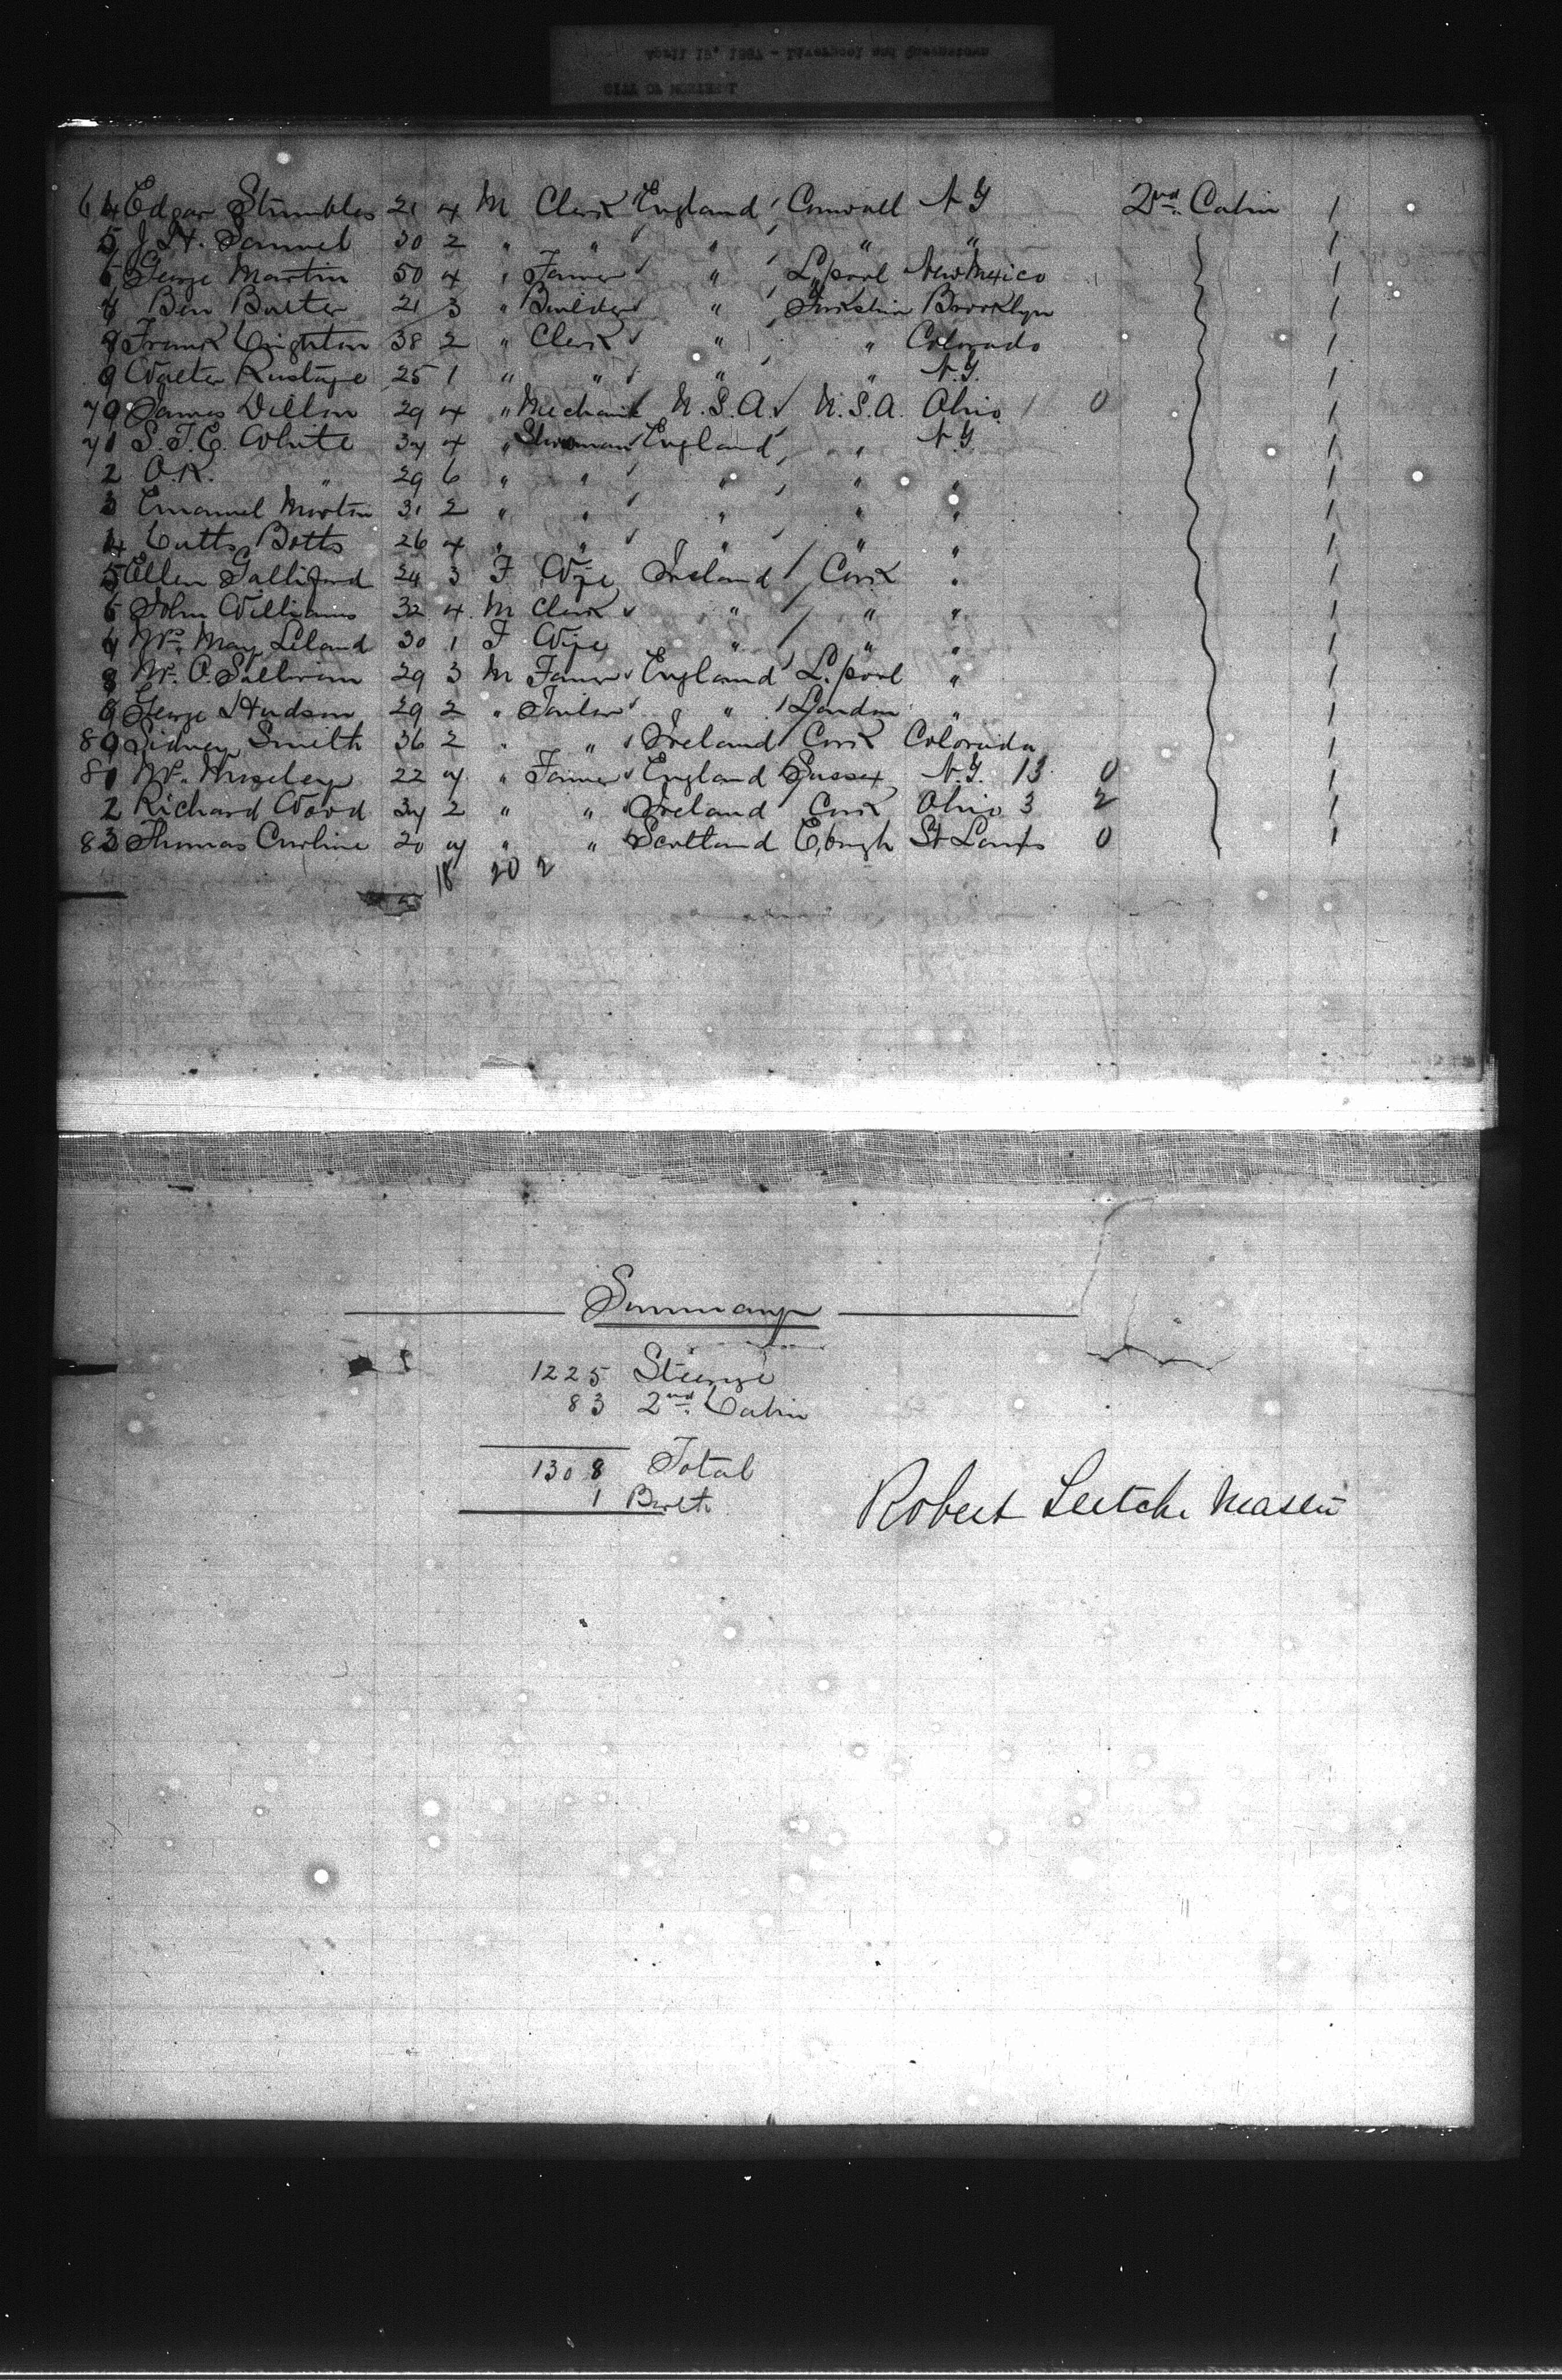 64 Edgar Stumbles 21 4 M Clerk England Cornwall N.Y 2nd Cabin 1
5 J. H. Samuel 30 2 " " " " " 1
6 George Martin 50 4 " Farmer " L.pool New Mexico 1
7 Ben Butler 21 3 " Builder " Yorkshire Brooklyn 1
8 Frank Leighton 38 2 " Clerk " " Colorado 1
9 Walter 25 1 " " " " N.Y. 1
70 James Dillon 29 4 " Mechanic U.S.A. U.S.A. Ohio 1 0 1
71 S. T. C. White 37 4 " Showman England " N.Y 1
2 O.K. " 29 6 " " " " " 1
3 Emanuel Morton 31 2 " " " " " 1
4 Cutts Botts 26 4 " " " " " 1
5 Ellen Galliford 24 3 F Wife Ireland Cork " 1
6 John Williams 32 4 M Clerk " " " 1
7 Mrs. May Leland 30 1 F Wife " " " 1
8 Mr. O. Sullivan 29 3 M Farmer England L.pool " 1
9 George Hudson 29 2 " Tailor " London " 1
80 Sidney Smith 36 2 " " Ireland Cork Colorado 1
81 Mr. 22 7 " Farmer England Sussex N.Y. 13 0 1
2 Richard Wood 37 2 " " Ireland Cork Ohio 3 2 1
83 Thomas 20 7 " " Scotland E,burgh St Louis 0 1
18 20 2
Summary
1225 Steerage
83 2nd Cabin
1308 Total
1 Birth
Robert Leitch Master